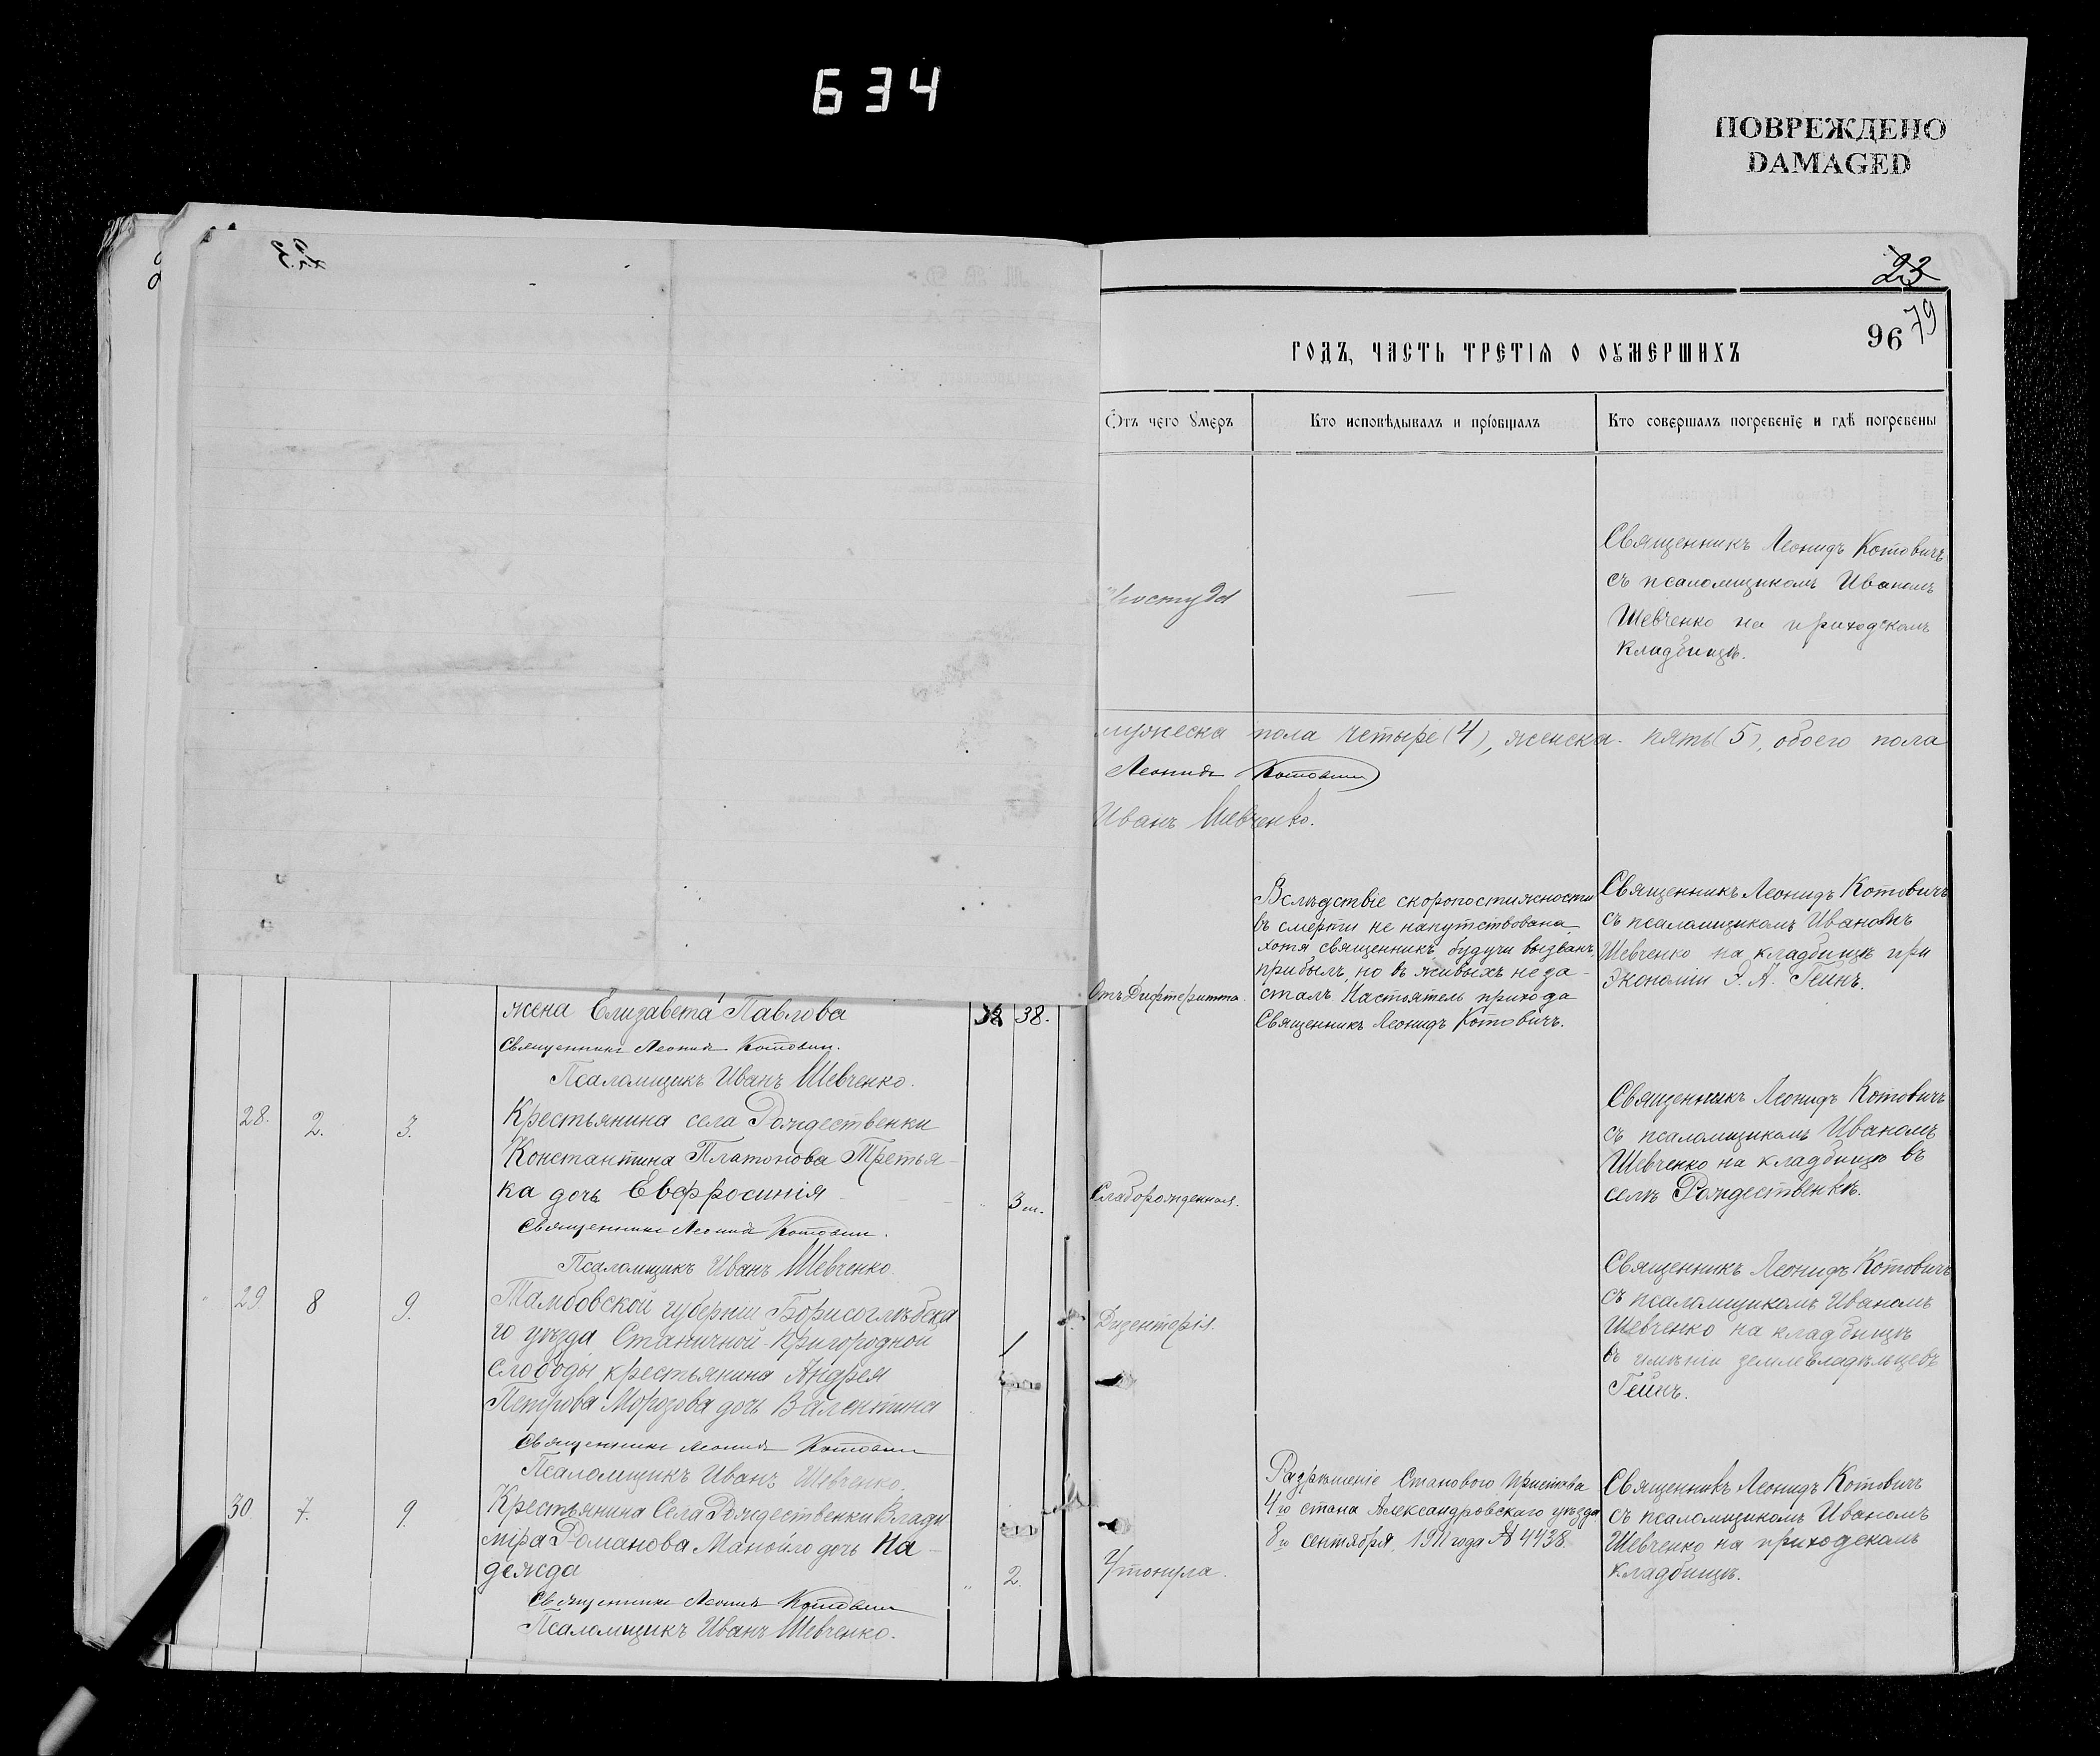 634
ПОВРЕЖДЕНО
DAMAGED
23
79
96
ГОДЪ, ЧАСТЬ ТРЕТІѦ О ОУМЕРШИХЪ
Ѿтъ чего Ꙋмеръ
Кто исповѣдывалъ и пріобщалъ
Кто совершалъ погребенїе и гдѣ погребены
Простуда
Священникъ Леонидъ Котовичъ
съ псаломщикомъ Иваномъ
Шевченко на приходскомъ
кладбищѣ.
мужеска пола четыре (4), женска пять (5), обоего пола
Леонидъ Котовичъ
Иванъ Шевченко.
жена Елизавета Павлова
38.
Отъ Дифтерита.
Вслѣдствіе скоропостижности
въ смерти не напутствована
хотя священникъ, будучи вызванъ,
прибылъ, но въ живыхъ не за-
сталъ. Настоятель прихода
Священникъ Леонидъ Котовичъ.
Священникъ Леонидъ Котовичъ
съ псаломщикомъ Иваномъ
Шевченко на кладбищѣ при
экономіи Э. А. Гейнъ.
Священникъ Леонидъ Котовичъ.
Псаломщикъ Иванъ Шевченко.
28.
2.
3.
Крестьянина села Рождественки
Константина Платонова Третья-
ка дочь Евфросинія
3 м.
Слаборожденная.
Священникъ Леонидъ Котовичъ
съ псаломщикомъ Иваномъ
Шевченко на кладбищѣ въ
селѣ Рождественкѣ.
Священникъ Леонидъ Котовичъ.
Псаломщикъ Иванъ Шевченко.
29
8
9.
Тамбовской губерніи Борисоглѣбска
го уѣзда Станичной-Пригородной
слободы, крестьянина Андрея
Петрова Морозова дочь Валентина
1
Дизентерія.
Священникъ Леонидъ Котовичъ
съ псаломщикомъ Иваномъ
Шевченко на кладбищѣ
въ имѣніи землевладѣльцевъ
Гейнъ.
Священникъ Леонидъ Котовичъ
Псаломщикъ Иванъ Шевченко.
30
7.
9.
Крестьянина Села Рождественки Влади
міра Романова Манойло дочь На-
дежда
2.
Утонула.
Разрѣшеніе Станового Пристава
4го стана Александровскаго уѣзда
8го сентября 1911 года № 4438.
Священникъ Леонидъ Котовичъ
съ псаломщикомъ Иваномъ
Шевченко на приходскомъ
кладбищѣ.
Священникъ Леонидъ Котовичъ
Псаломщикъ Иванъ Шевченко.